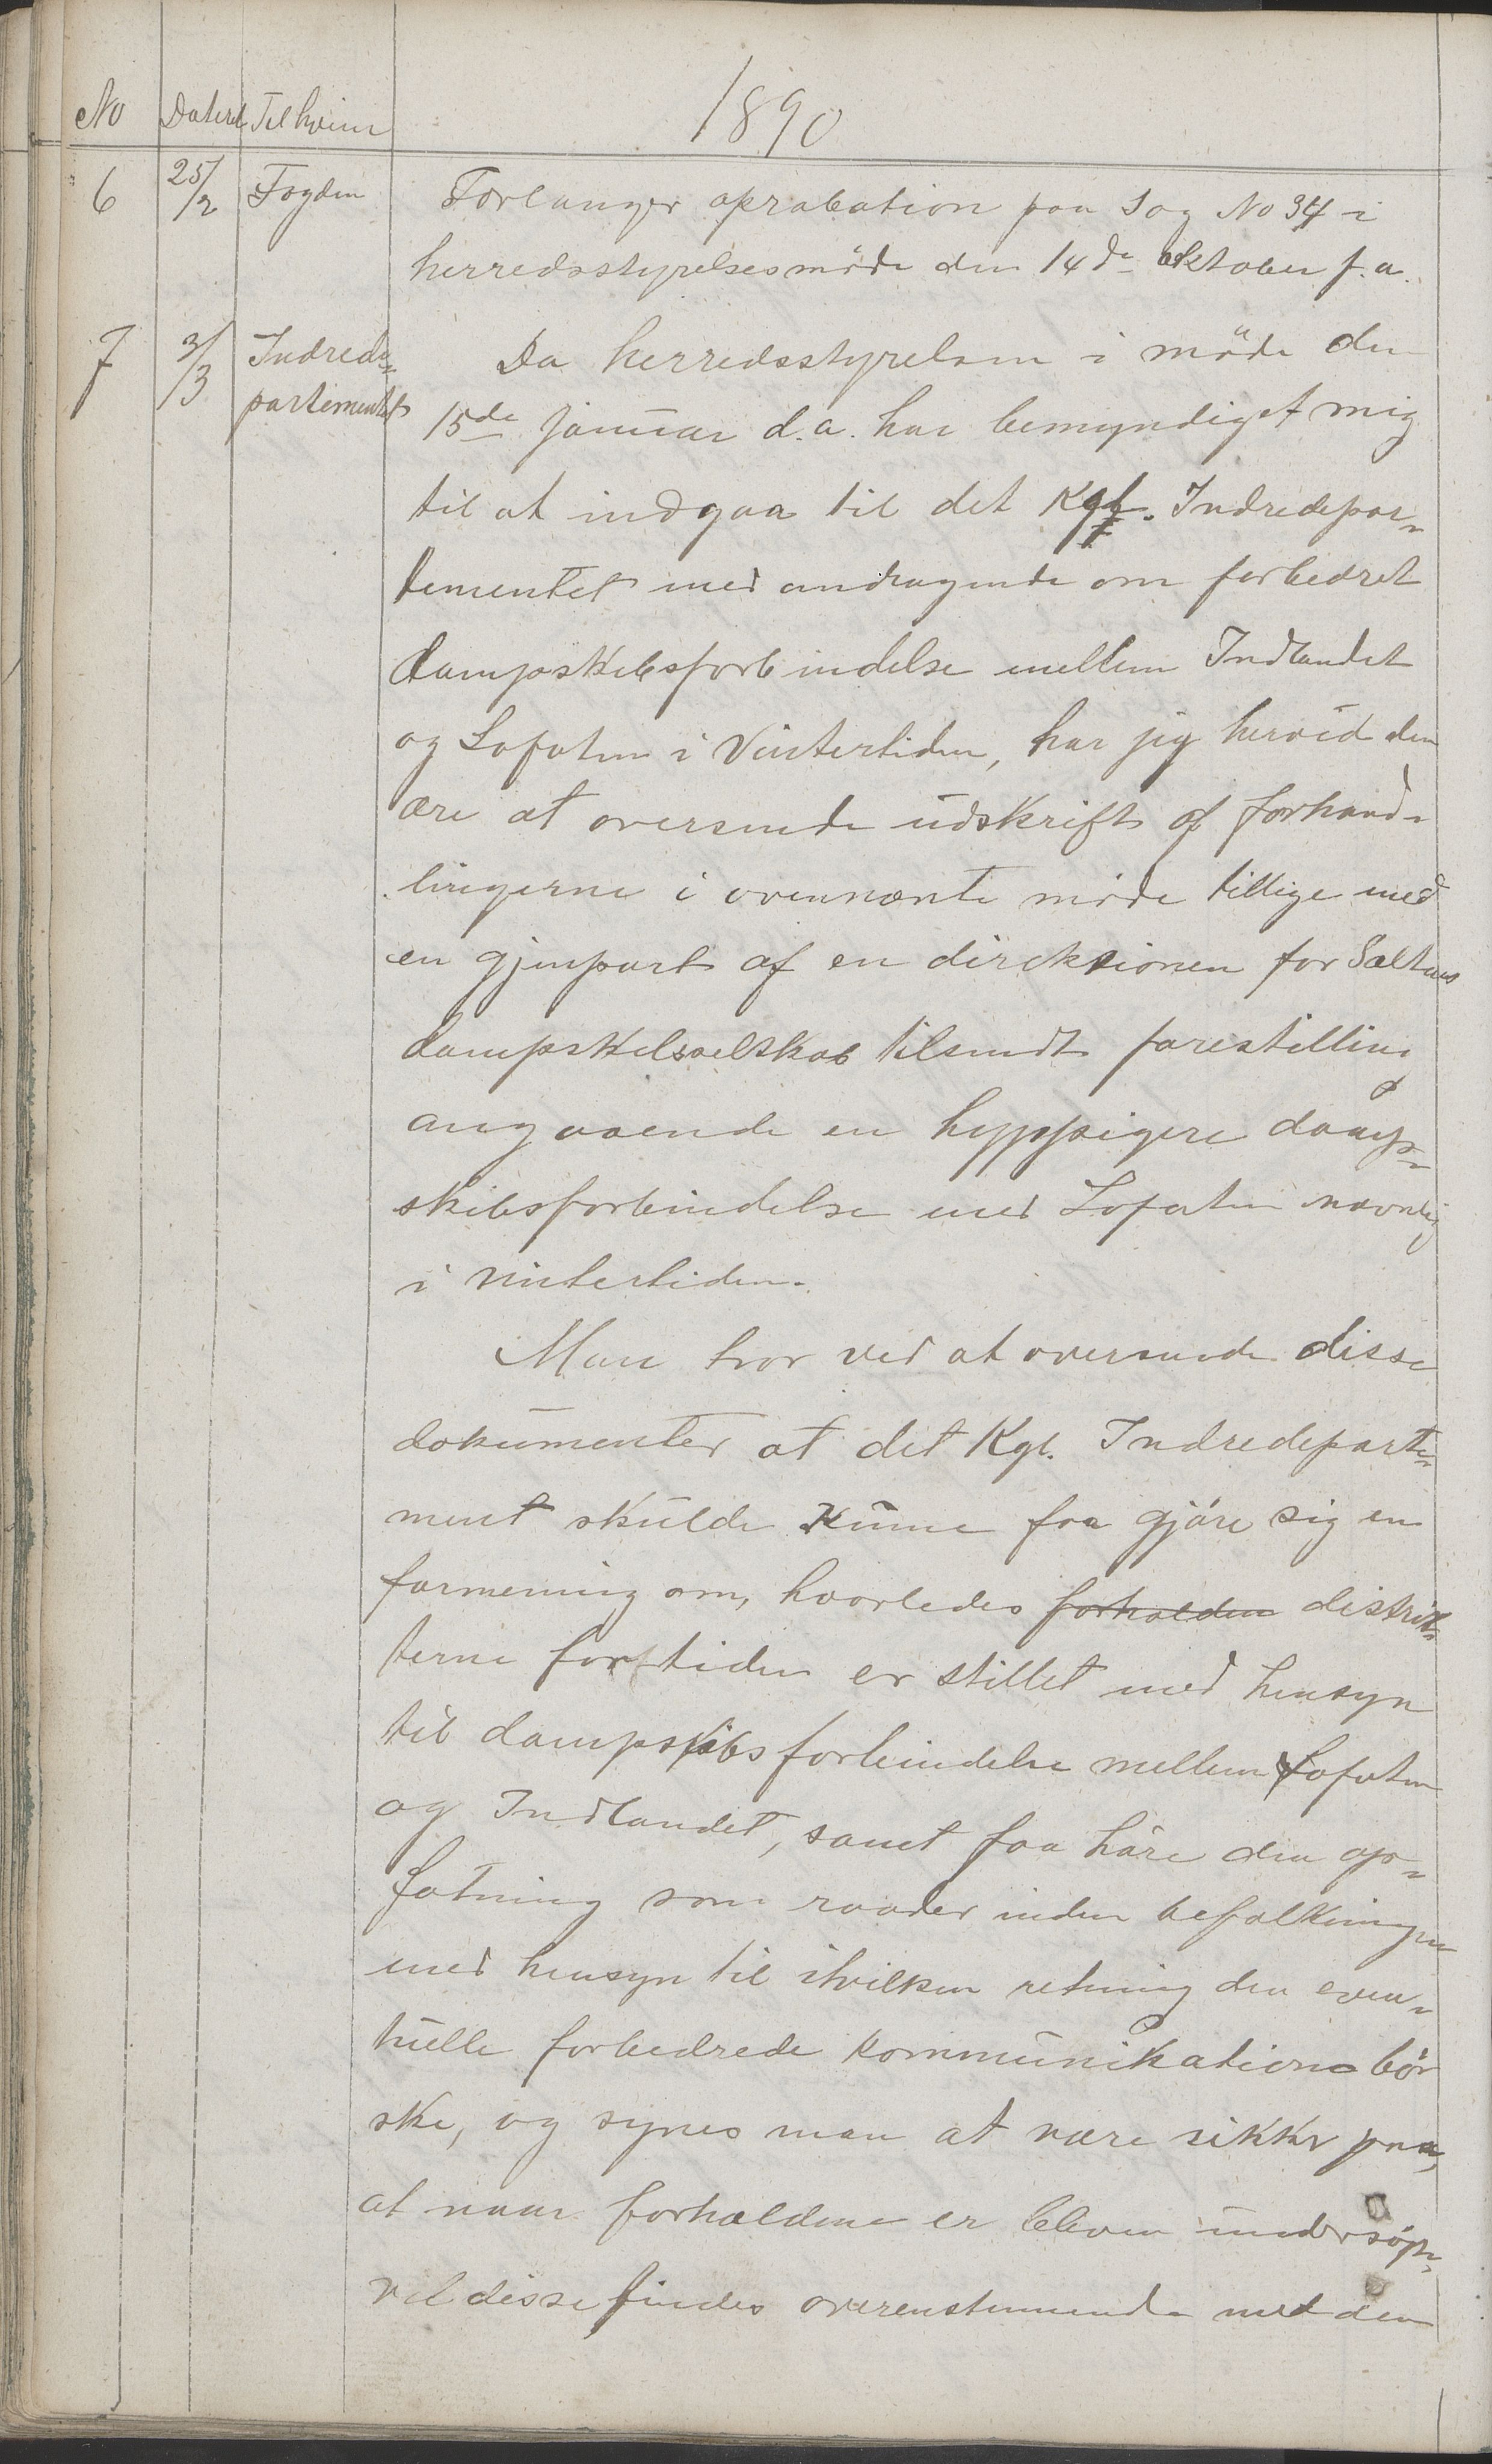 1890
No Dateret Til hvem
6 25/2 Fogden Forlanger aprobation paa Sag No 34 i
herredsstyrelsesmöde den 14de oktober f.a.
7 3/3 Indrede- Da herredsstyrelsen i möde den
partementet 15de januar d.a. har bemyndiget mig
til at indgaa til det Kgl. Indredepar-
tementet med andragende om forbedret
dampskibsforbindelse mellem Indlandet
og Lofoten i Vintertiden, har jeg herved den
ære at oversende udskrift af forhand-
lingerne i ovennævnte möde tillige med
en gjenpart af en direktionen for Saltens
dampskibsselskab tilsendt forestilling
angaaende en hyppigere damp-
skibsforbindelse med Lofoten navnlig
i vintertiden.
Man tror ved at oversende disse
dokumenter at det Kgl. Indredeparte-
ment skulde kunne faa gjöre sig en
formening om, hvorledes forholdene distrik-
terne fortiden er stillet med hensyn
til dampskibsforbindelse mellem Lofoten
og Indlandet, samt faa höre den op-
fatning som raader inden befolkningen
med hensyn til ihvilken retning den even-
tuelle forbedrede kommunikation bör
ske, og synes man at være sikker paa,
at naar forholdene er bleven undersögt,
vil disse findes overenstemmende med den